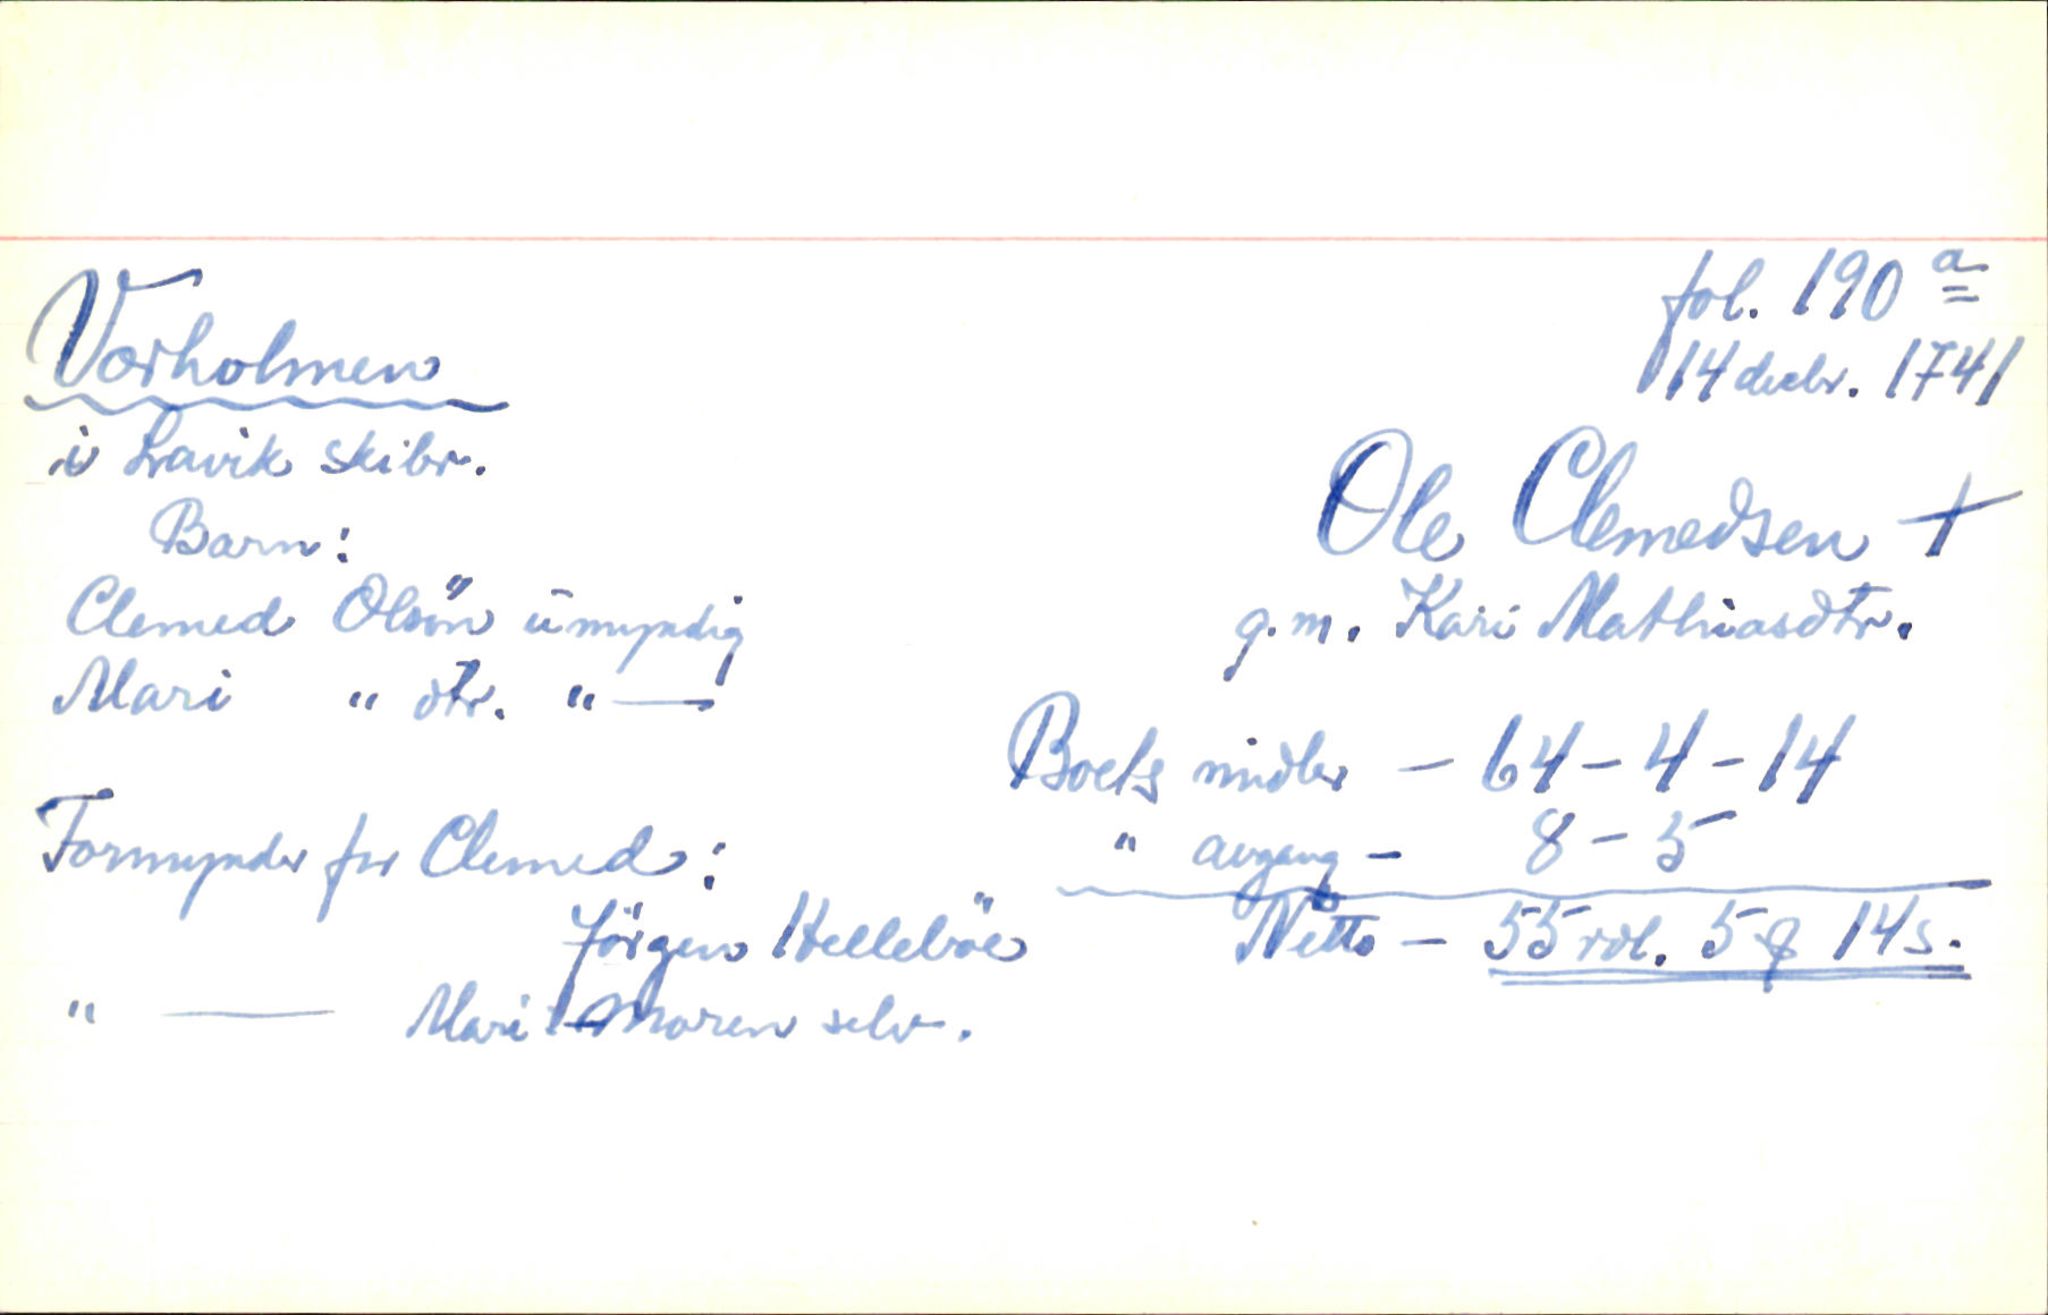 fol. 190 a
14 decbr. 1741
Vorholmen
i Lavik skibr.
Ole Clemedsen +
g.m. Kari Mathiasdtr.
Barn:
Clemed Olsön umyndig
Mari " dtr. " —
Boets midler — 64 – 4 – 14
" avgang – 8 – 5
Netto — 55 rdl. 5 ꝗ 14 s.
Formynder for Clemed:
Jörgen Helleböe
" — Mari: Moren selv.